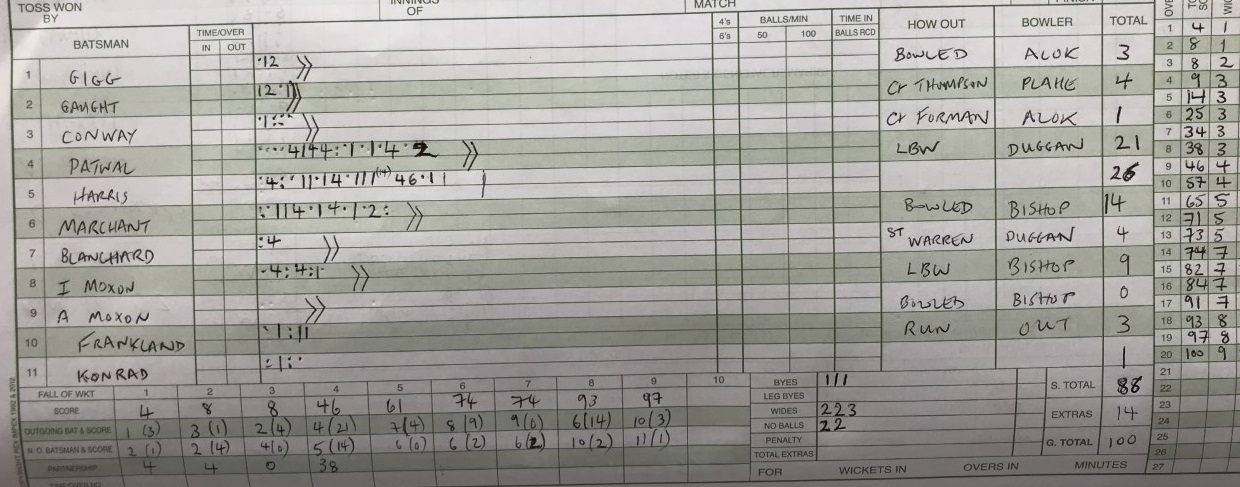 TOSS WON BY
INNINGS OF
MATCH
BATSMAN TIME/OVER IN OUT 4's 6's BALLS/MIN 50 100 TIME IN BALLS RCD HOW OUT BOWLER TOTAL
1 GIGG ·12 BOWLED ALOK 3
2 GAUGHT 12·1 Ct THOMPSON PLAHE 4
3 CONWAY Ct FORMAN ALOK 1
4 PATWAL LBW DUGGAN 21
5 HARRIS 26
6 MARCHANT BOWLED BISHOP 14
7 BLANCHARD :4 ST WARREN DUGGAN 4
8 I MOXON LBW BISHOP 9
9 A MOXON BOWLED BISHOP 0
10 FRANKLAND RUN OUT 3
11 KONRAD 1
FALL OF WKT 1 2 3 4 5 6 7 8 9 10
SCORE 4 8 8 46 61 74 74 93 97
OUTGOING BAT & SCORE 1 (3) 3 (1) 2 (4) 4 (21) 7 (4) 8 (9) 9 (0) 6 (14) 10 (3)
N. O. BATSMAN & SCORE 2 (1) 2 (4) 4 (0) 5 (14) 6 (0) 6 (2) 6 (2) 10 (2) 11 (1)
PARTNERSHIP 4 4 0 38
BYES 111
LEG BYES
WIDES 223
NO BALLS 22
PENALTY
TOTAL EXTRAS
S. TOTAL 86
EXTRAS 14
G. TOTAL 100
FOR WICKETS IN OVERS IN MINUTES
1 4 1
2 8 1
3 8 2
4 9 3
5 14 3
6 25 3
7 34 3
8 38 3
9 46 4
10 57 4
11 65 5
12 71 5
13 73 5
14 74 7
15 82 7
16 84 7
17 91 7
18 93 8
19 97 8
20 100 9
21
22
23
24
25
26
27